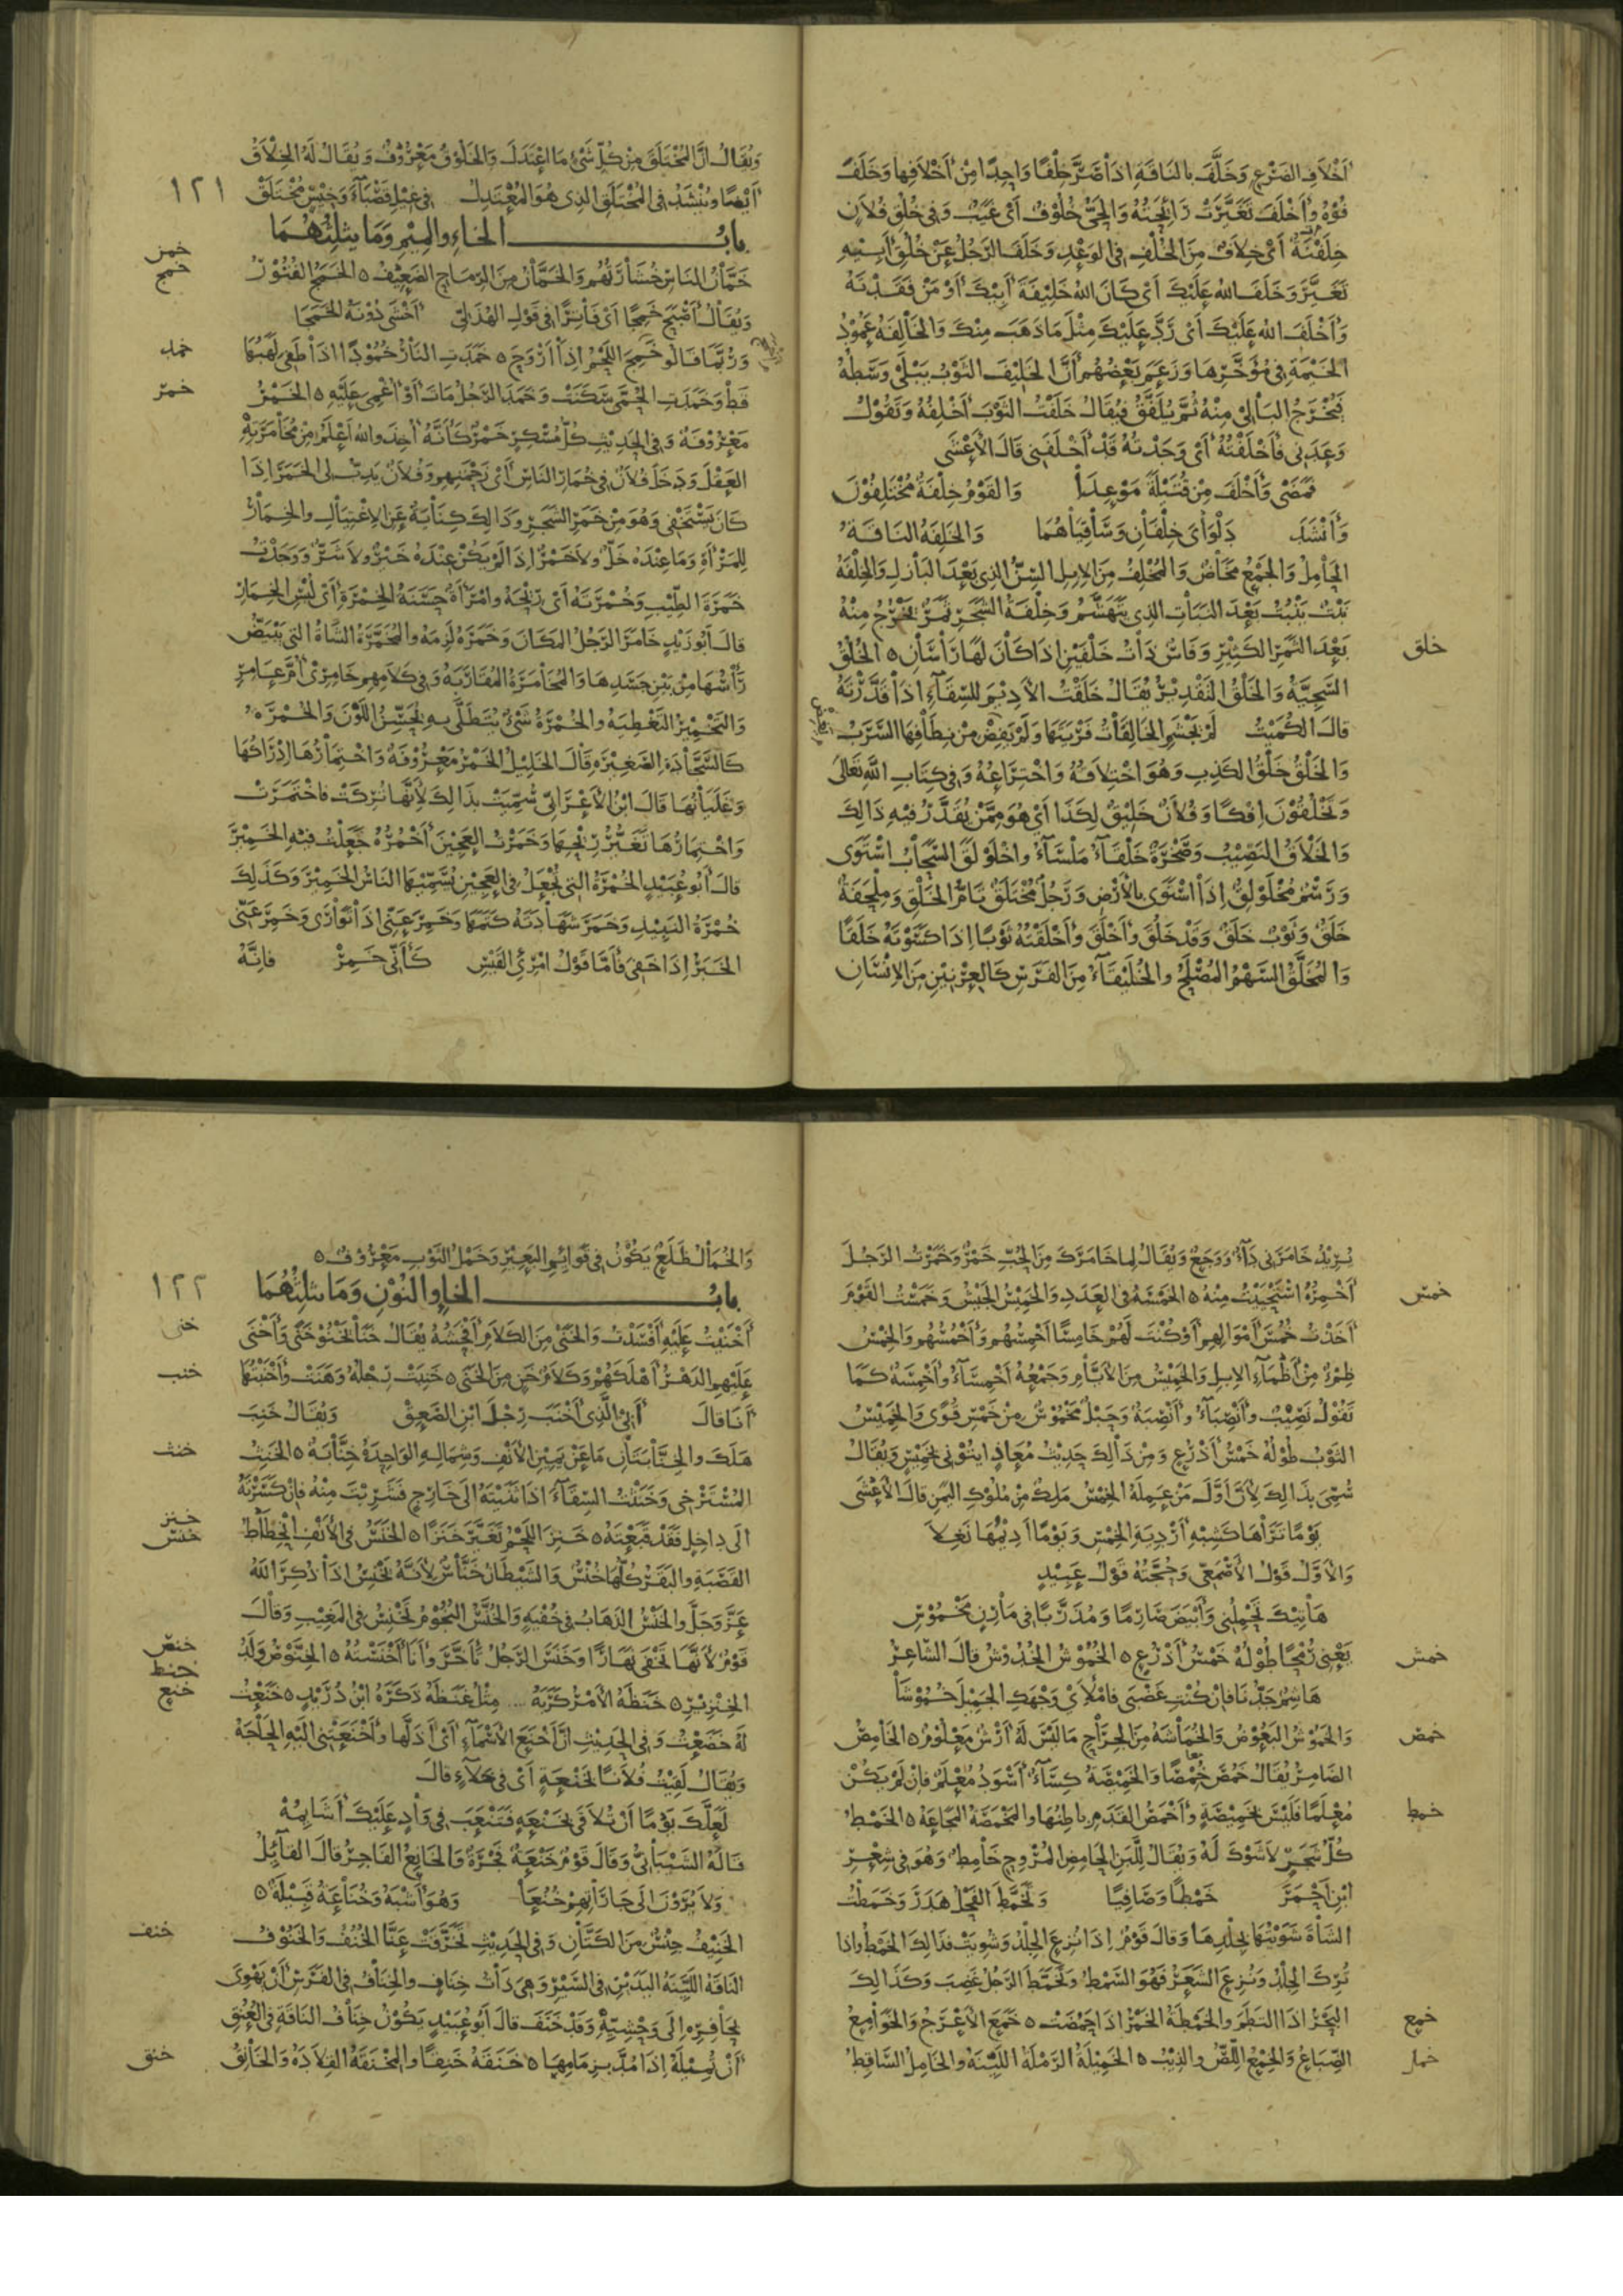 أخلاف الضرع وخلف بالناقة اذا صر خلفا واحدا من أخلافها وخلف
فوه وأخلف تغيرت رائحته والحي خلوف أي غيب وفي خلق فلان
خلفنة أي خلاف من الخلف في الوعد وخلف الرجل عن خلق أبيه
تغير وخلف الله عليك أي كان الله خليفة أبيك أو من فقدته
وأخلف الله عليك أي رد عليك مثل ما ذهب منك والخالفة عمود
الخيمة في مؤخرها وزعم بعضهم أن الخليف الثوب يبلى وسطه
فيخرج البالي منه ثم يلفق فيقال خلفت الثوب أخلفه وتقول
وعدني فأخلفته أي وجدته قد أخلفني قال الأعشى
فمضى وأخلف من قتيلة موعدا والقوم خلفة مختلفون
وأنشد دلواي خلفان وساقياهما والخلفة الناقة
الحامل والجمع مخاض والمخلف من الابل السن الذي بعد البازل والخلفة
نبت ينبت بعد النبات الذي يتهشم وخلفة الشجر ثمر يخرج منه
خلق
بعد الثمر الكثير وفاس ذات خلفين اذا كان لها رأسان ٥ الخلق
السجية والخلق التقدير يقال خلقت الأديم للسقاء إذا قدرته
قال الكميت لم يجشم الخالقات فريتها ولم يفض من نطافها السرب
والخلق خلق الكذب وهو اختلاقه واختراعه وفي كتاب الله تعالى
وتخلقون إفكا وفلان خليق لكذا أي هو ممن يقدر فيه ذالك
والخلاق النصيب وصخرة خلقاء ملساء واخلولق السحاب استوى
ورسم مخلولق إذا استوى بالأرض ورجل مختلق تام الخلق وملحفة
خلق وثوب خلق وقد خلق وأخلق وأخلقته ثوبا إذا كسوته خلقا
والمخلق السهم المصلح والخليقاء من الفرس كالعرنين من الإنسان
ويقال ان المختلق من كل شيء ما اعتدل والخلوق معروف ويقال له الخلاق
١٢١
أيضا وينشد في المختلق الذي هو المعتدل في غيل قصباء وخيس مختلق
باب الخاء والميم وما يثلثهما
خمن
خمج
خمان الناس خشارتهم والخمان من الرماح الضعيف ٥ الخمج الفتور
ويقال أصبح خمجا أي فاترا في قول الهذلي أخشى دونه الخمجا
خمد
وربما قالو خمج اللحم إذا أروح ٥ خمدت النار خمودا اذا طفى لهبها
خمر
قط وخمدت الحمى سكنت وخمد الرجل مات أو أغمي عليه ٥ الخمر
معروفة وفي الحديث كل مسكر خمر كأنه أخذ والله أعلم من مخامرته
العقل ودخل فلان في خمار الناس أي زحمتهم وفلان يدب لي الخمر اذا
كان يستخفي وهو من خمر الشجر وذالك كناية عن الاغتيال والخمار
للمرأة وما عنده خل ولا خمر اذا لم يكن عنده خير ولا شر ووجدت
خمرة الطيب وخمرته أي ريحه وامرأة حسنة الخمرة أي لبس الخمار
قال أبو زيد خامر الرجل المكان وخمره لزمه والمخمرة الشاة التي يبيض
رأسها من بين جسدها والمخامرة المقاربة وفي كلامهم خامري أم عامر
والتخمير التغطية والخمرة شيء يتطلى به لتحسن اللون والخمرة
كالسجادة الصغيرة قال الخليل الخمر معروفة واختمارها إدراكها
وغليانها قال ابن الأعرابي سميت بذالك لأنها تركت فاختمرت
واختمارها تغير ريحها وخمرت العجين أخمره جعلت فيه الخمير
قال أبو عبيد الخمرة التي تجعل في العجين يسميها الناس الخمير وكذلك
خمرة النبيذ وخمر شهادته كتمها وخمر عني اذا توارى وخمر عني
الخبر إذا خفي فأما قول امرئ القيس كأني خمر فانه
يريد خامرني داء ووجع ويقال لما خامرك من الحب خمر وخمرت الرجل
خمس
أخمره استحييت منه ٥ الخمسة في العدد والخميس الجيش وخمست القوم
أخذت خمس أموالهم أو كنت لهم خامسا أخمسهم وأخمسهم والخمس
ظمء من أظماء الابل والخميس من الأيام وجمعه أخمساء وأخمسة كما
تقول نصيب وأنصباء وأنصبة وحبل مخموس من خمس قوى والخميس
الثوب طوله خمس أذرع ومن ذالك حديث معاذ ايتوني بخميس ويقال
سمي بذالك لأن أول من عمله الخمس ملك من ملوك اليمن قال الأعشى
يوما تراها كشبه أردية الخمس ويوما أديمها نغلا
والأول قول الأصمعي وحجته قول عبيد
هاتيك تحملني وأبيض صارما ومذربا في مارن مخموس
خمش
يعني رمحا طوله خمس أذرع ٥ الخموش الخدوش قال الشاعر
هاشم جدنا فان كنت غضبى فاملأي وجهك الجميل خموشا
خمص
والخموش البعوض والخماشة من الجراح ما ليس له أرش معلوم ٥ الخامص
الضامر يقال خمص خمصا والخميصة كساء أسود معلم فان لم يكن
خمط
معلما فليس بخميصة وأخمص القدم باطنها والمخمصة المجاعة ٥ الخمط
كل شجر لا شوك له ويقال للبن الحامض المروح خامط وهو في شعر
ابن أحمر خمطا وصافيا وتخمط الفحل هدر وخمطت
الشاة شويتها بجلدها وقال قوم إذا نزع الجلد وشويت فذالك الخمط واذا
ترك الجلد ونزع الشعر فهو السمط وتخمط الرجل غضب وكذالك
خمع
البحر اذا التطم والخمطة الخمر اذا حمضت ٥ خمع الأعرج والخوامع
خمل
الضباع والخمع اللص والذيب ٥ الخميلة الرملة اللينة والخامل الساقط
والخمال ظلع يكون في قوائم البعير وخمل الثوب معروف ٥
١٢٢
باب الخا والنون وما يثلثهما
خنى
أخنيت عليه أفسدت والخنى من الكلام أفحشه يقال خنا يخنو خنى وأخنى
خنب
عليهم الدهر أهلكهم وكلام خن من الخنى ٥ خنبت رجله وهنت وأخنبتها
أنا قال أبي الذي أخنب رجل ابن الصعق ويقال خنب
خنث
هلك والخنابتان ما عن يمين الأنف وشماله الواحدة خنابة ٥ الخنث
المسترخي وخنثت السقاء اذا ثنيته الى خارج فشربت منه فان كسرته
خنز
خنس
الى داخل فقد قبعته ٥ خنز اللحم تغير خنزا ٥ الخنس في الأنف انحطاط
القصبة والبقر كلها خنس والشيطان خناس لأنه يخنس اذا ذكر الله
عز وجل والخنس الذهاب في خفية والخنس النجوم تخنس في المغيب وقال
خنص
قوم لأنها تخفى نهارا وخنس الرجل تأخر وأنا أخنسته ٥ الخنوص ولد
خنط
خنع
الخنزير ٥ خنطه الأمر كربه .... مثل غنطه ذكره ابن دريد ٥ خنعت
له خضعت وفي الحديث ان أخنع الأسماء أي أذلها وأخنعتني اليه الحاجة
ويقال لقيت فلانا بخنعة أي في خلاء قال
لعلك يوما أن تلاقى بخنعة فتنعب في واد عليك أشائمه
قاله الشيباني وقال قوم خنعة فجرة والخانع الفاجر قال القائل
ولا يرون الى جاراتهم خنعا وهو أشبه وخناعة قبيلة ٥
خنف
الخنيف جنس من الكتان وفي الحديث تخرقت عنا الخنف والخنوف
الناقة اللينة اليدين في السير وهي ذات خناف والخناف في الفرس أن يهوي
بحافره الى وحشيه وقد خنف قال أبو عبيد يكون خناف الناقة في العنق
خنق
أن تميله إذا مد بزمامها ٥ خنقه خنقا والمخنقة القلادة والخانق